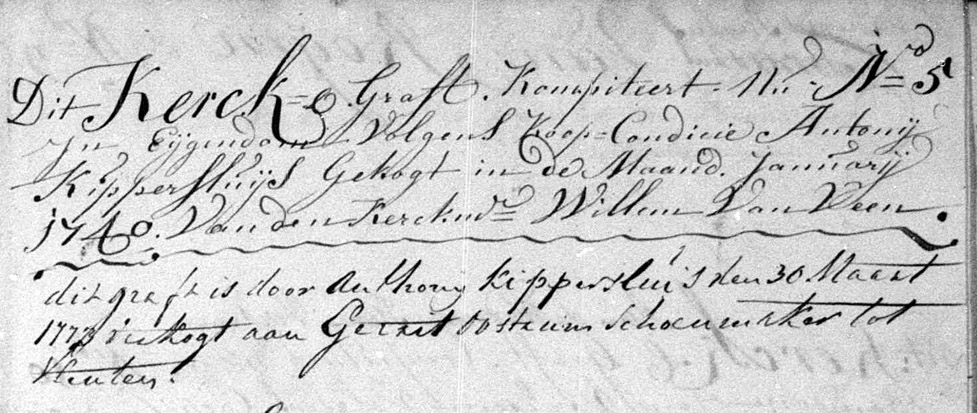 Dit Kerck=e Graft. Kompiteert. Nu. No 5
In Eijgendom Volgens Koop=Condicie Antonij
Kippersluijs Gekogt in de Maand. Januarij
1748. Van den Kerckmr Willem Van Veen.
dit graft is door Anthony Kippersluis den 30. Maart
1773 verkogt aan Gerrit Oosterum Schoenmaker tot
Vleuten.